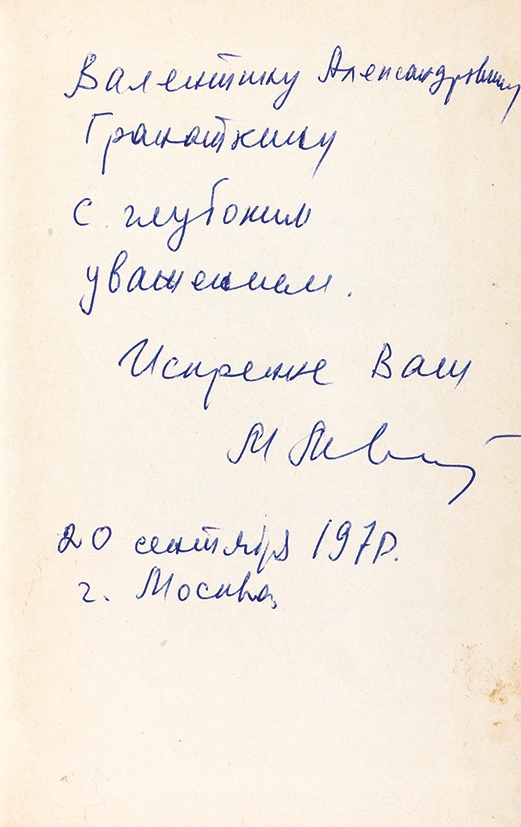 Валентину Александровичу
Гранаткину
С глубоким
уважением.
Искренне Ваш
М
20 сентября 1970.
г. Москва